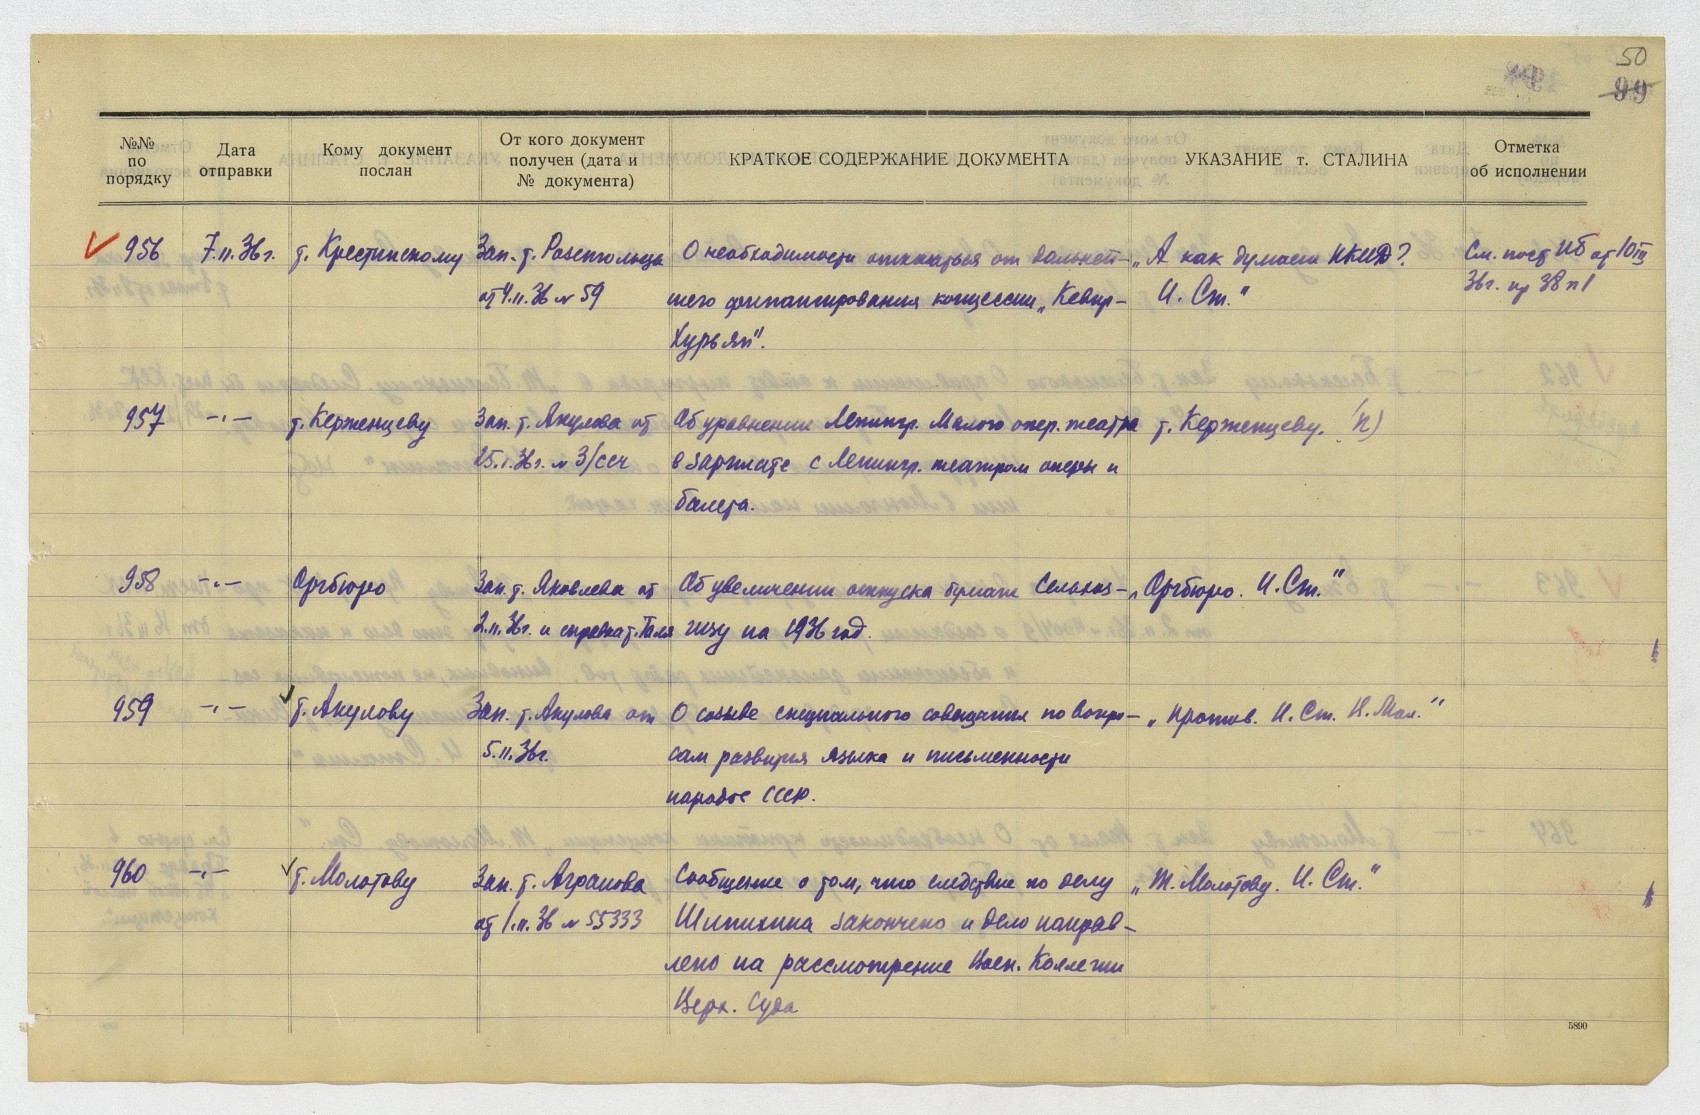 50
99
№№ по порядку
Дата отправки
Кому документ послан
От кого документ получен (дата и № документа)
КРАТКОЕ СОДЕРЖАНИЕ ДОКУМЕНТА
УКАЗАНИЕ т. СТАЛИНА
Отметка об исполнении
956 7.II.36г. т. Крестинскому Зап. т. Розенгольца О необходимости отказаться от дальней- „А как думает НКИД? См. пост. ПБ от 10/III
от 4.II.36 № 59 шего финансирования концессии „Кевир- И. Ст." 36г. пр 38 п 1
Хурьян".
957 -„- т. Керженцеву Зап. т. Акулова от Об уравнении Ленингр. Малого опер. театра т. Керженцеву. (п)
25.I.36г. № 3/ссч в зарплате с Ленингр. театром оперы и
балета.
958 -„- Оргбюро Зап. т. Яковлева от Об увеличении отпуска бумаги Сельхоз- „Оргбюро. И. Ст."
2.II.36г. и справка т. Таля гизу на 1936 год.
959 -„- т. Акулову Зап. т. Акулова от О созыве специального совещания по вопро- „Против. И. Ст. В. Мол."
5.II.36г. сам развития языка и письменности
народов СССР.
960 -„- т. Молотову Зап. т. Агранова Сообщение о том, что следствие по делу „Т. Молотову. И. Ст."
от 1.II.36 № 55333 Шипихина закончено и дело направ-
лено на рассмотрение Воен. Коллегии
Верх. Суда
5890